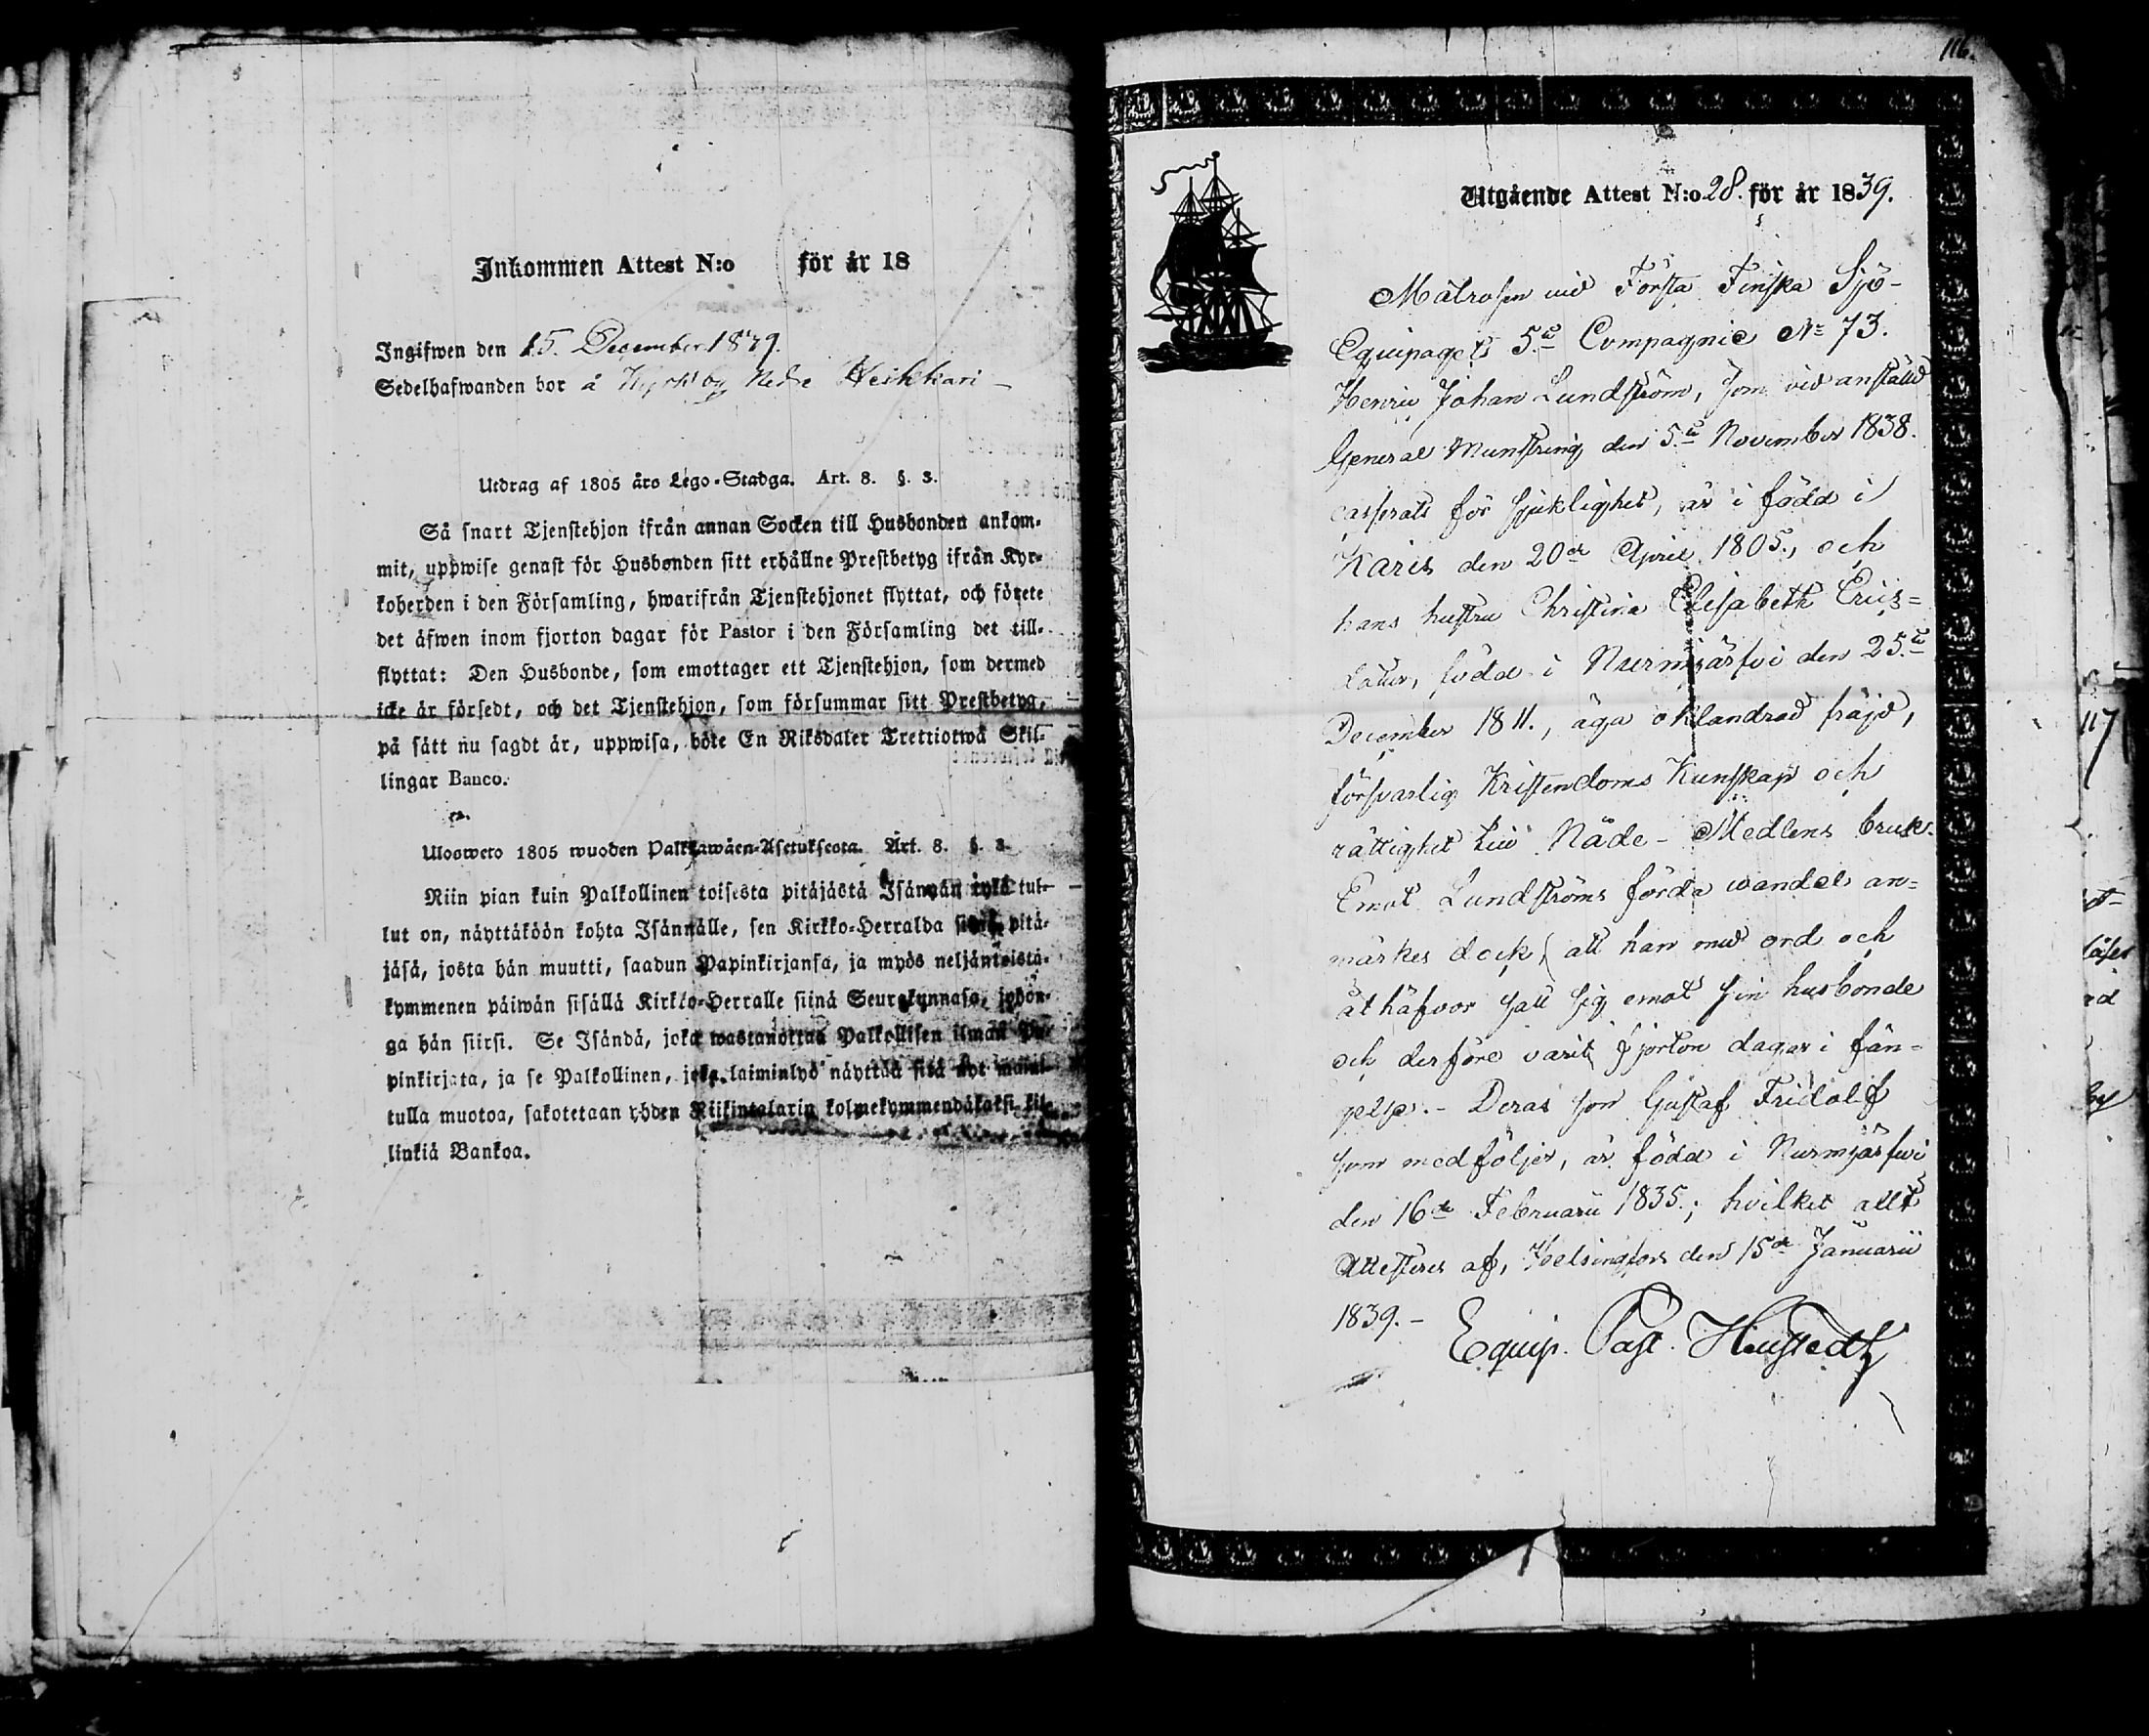 Inkommen Attest N:o för år 18
Ingifwen den 15. December 1839.
Sedelhafwanden bor å Kyrkby Nedre Heikkari
Utdrag af 1805 års Lego-Stadga. Art. 8. §. 3.
Så snart Tjenstehjon ifrån annan Socken till Husbonden ankom-
mit, uppwise genast för Husbonden sitt erhållne Prestbetyg ifrån Kyr-
koherden i den Församling, hwarifrån Tjenstehjonet flyttat, och förete
det äfwen inom fjorton dagar för Pastor i den Församling det till-
flyttat: Den Husbonde, som emottager ett Tjenstehjon, som dermed
icke är försedt, och det Tjenstehjon, som försummar sitt Prestbetyg,
på sätt nu sagdt är, uppwisa, böte En Riksdaler Trettiotwå Skil-
lingar Banco.
Ulosweto 1805 wuoden Palkkawäen-Asetuksesta. Art. 8. §. 3.
Niin pian kuin Palkollinen toisesta pitäjästä Isännän tykö tul-
lut on, näyttäköön kohta Isännälle, sen Kirkko-Herralda siinä pitä-
jäsä, josta hän muutti, saadun Papinkirjansa, ja myös neljäntoista-
kymmenen päiwän sisällä Kirkko-Herralle siinä Seurakunnasa, johon-
ga hän siirsi. Se Isändä, joka wastanottaa Palkollisen ilman Pa-
pinkirjata, ja se Palkollinen, joka laiminlyö näyttää sitä nyt mainit-
tulla muotoa, sakotetaan yhden Riikintalarin kolmekymmendäkaksi kil-
linkiä Bankoa.
116.
Utgående Attest N:o 28. för år 1839.
Matrosen vid Första Finska Sjö-
Equipagets 5:te Compagnie No 73.
Henric Johan Lundström, som vid anställd
General Munstring den 5:te November 1838.
casserats för sjuklighet, är född i
Karis den 20de April 1805., och
hans hustru Christina Elisabeth Erics=
dotter, född i Nurmijärfvi den 25:te
December 1811., äga oklandrad fräjd,
försvarlig Kristendoms Kunskap och
rättighet till Nåde-Medlens bruk.
Emot Lundströms förda wandel an=
märkes dock, att han med ord och
åthäfvor satt sig emot sin husbonde
och derföre varit fjorton dagar i fän=
gelse. - Deras son Gustaf Fridolf
som medföljer, är född i Nurmijärfvi
den 16de Februarii 1835.; hvilket allt
Attesteres af, Helsingfors den 15de Januarii
1839. -
Equip. Past.
117